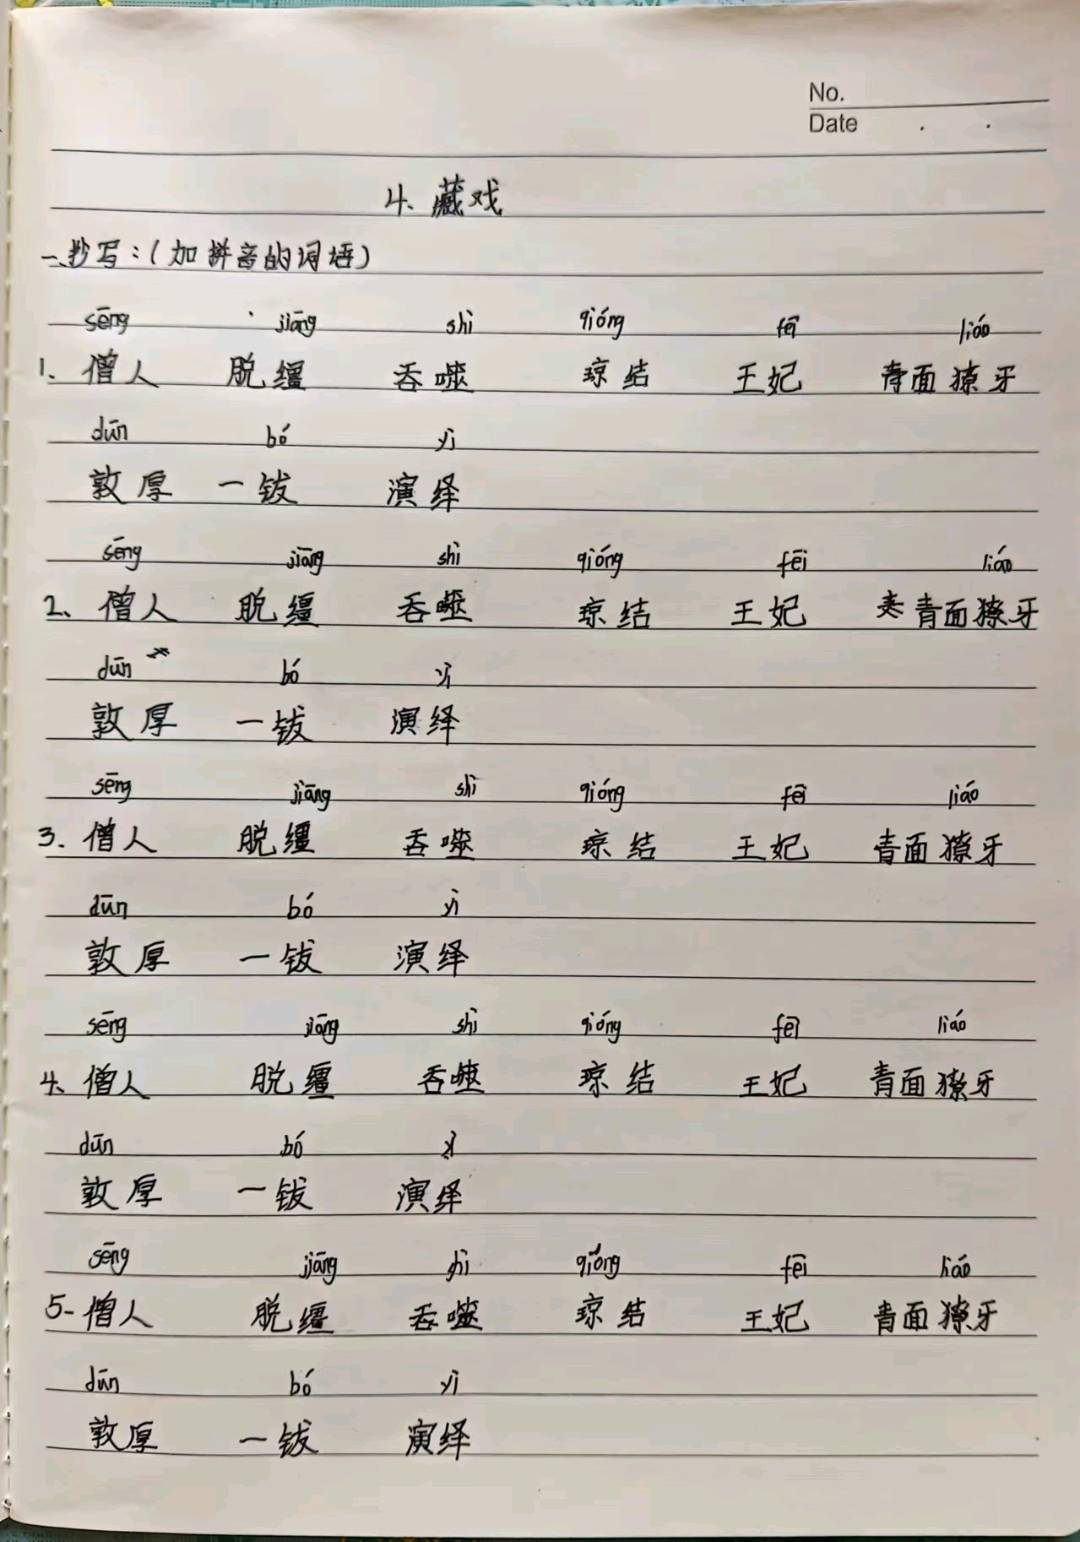 No.
Date
4、藏戏
一、抄写：（加拼音的词语）
sēng jiāng shì qióng fēi liáo
1. 僧人 脱缰 吞噬 琼结 王妃 青面獠牙
dūn bó yì
敦厚 一钹 演绎
sēng jiāng shì qióng fēi liáo
2、僧人 脱缰 吞噬 琼结 王妃 青面獠牙
dūn bó yì
敦厚 一钹 演绎
sēng jiāng shì qióng fēi liáo
3. 僧人 脱缰 吞噬 琼结 王妃 青面獠牙
dūn bó yì
敦厚 一钹 演绎
sēng jiāng shì qióng fēi liáo
4、僧人 脱缰 吞噬 琼结 王妃 青面獠牙
dūn bó yì
敦厚 一钹 演绎
sēng jiāng shì qióng fēi liáo
5- 僧人 脱缰 吞噬 琼结 王妃 青面獠牙
dūn bó yì
敦厚 一钹 演绎